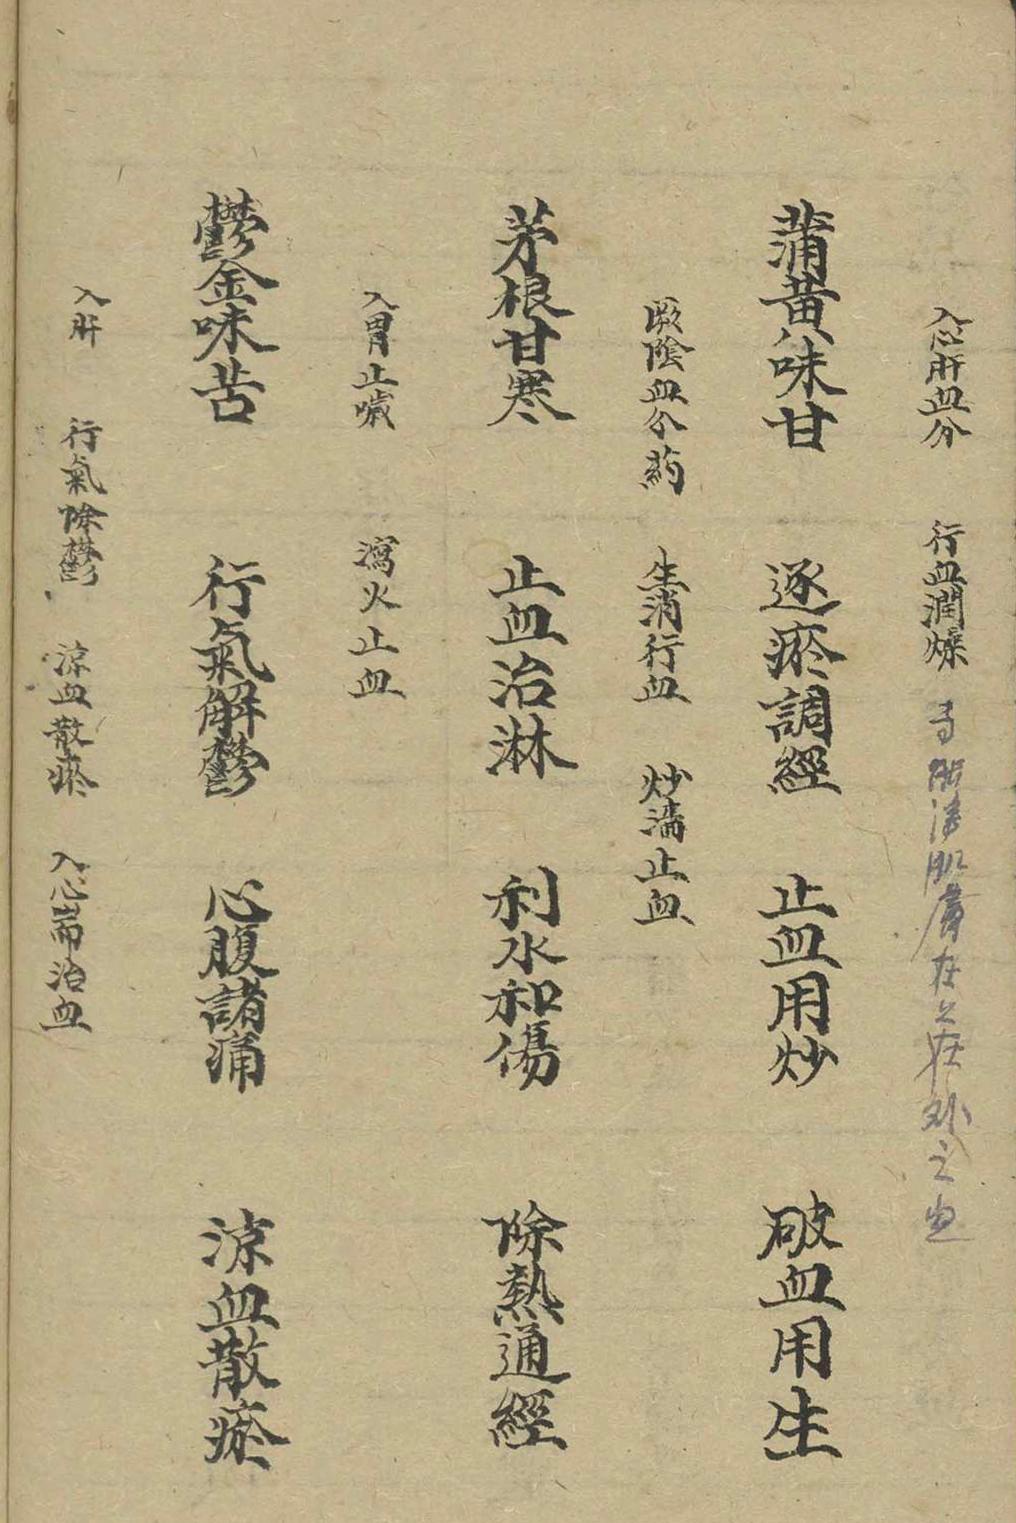 入心肝血分 行血潤燥
蒲黄味甘 逐瘀調經 止血用炒 破血用生
厥陰血分药 生消行血 炒濇止血
茅根甘寒 止血治淋 利水和傷 除熱通經
入胃止噦 瀉火止血
鬱金味苦 行氣解鬱 心腹諸痛 涼血散瘀
入肝 行氣除鬱 涼血散瘀 入心耑治血